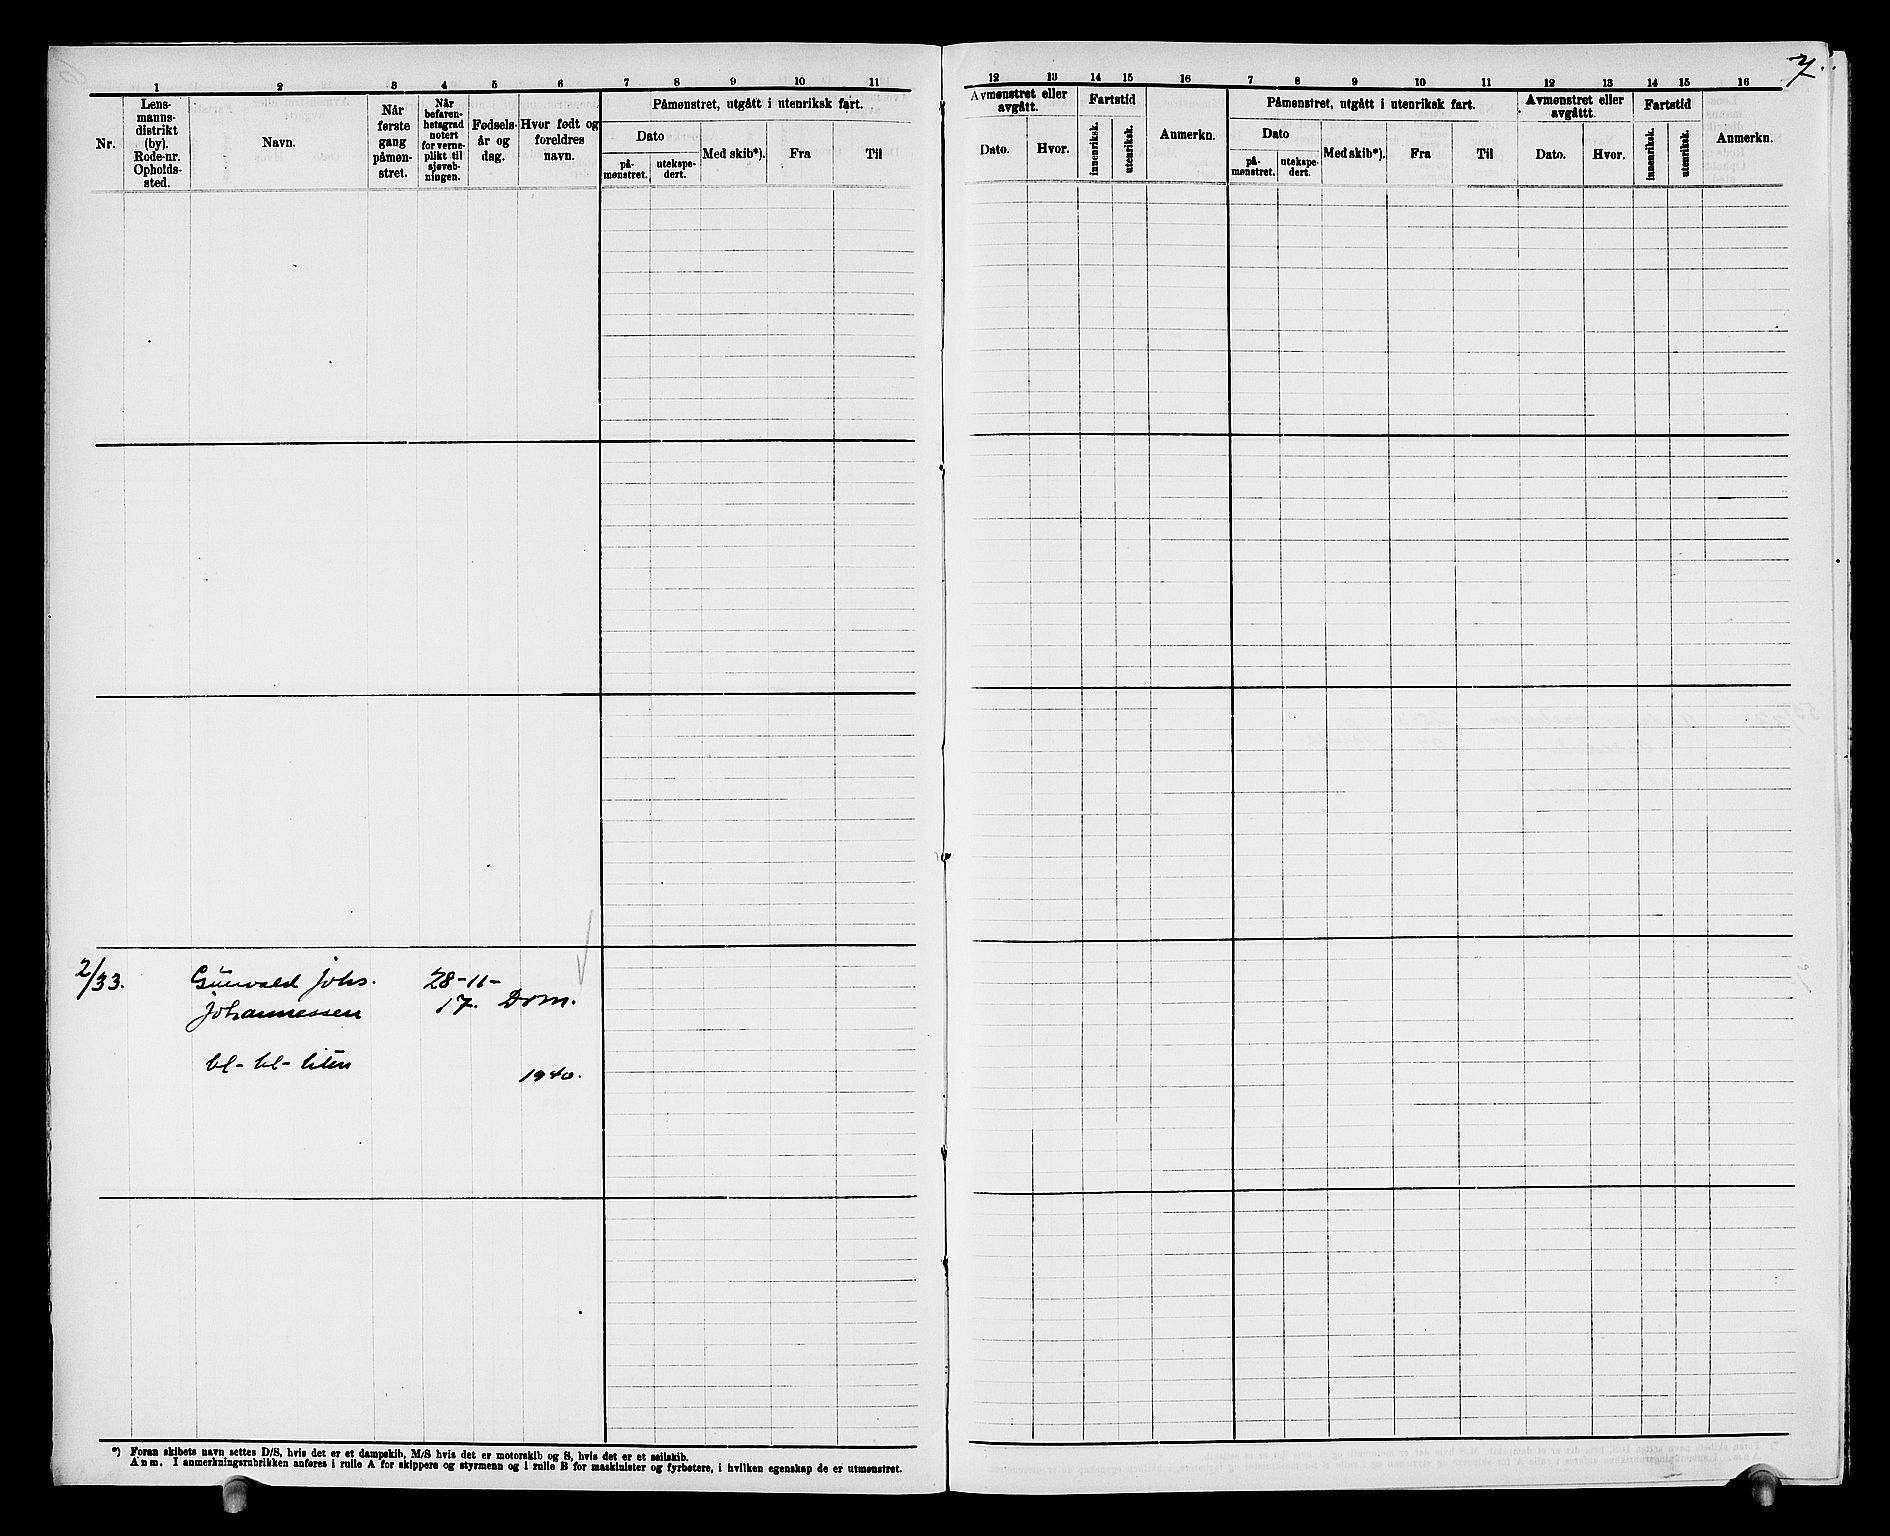 1 2 3 4 5 6 7 8 9 10 11
Nr.
Lens-
manns-
distrikt
(by).
Rode-nr.
Opholds-
sted.
Navn.
Når
første
gang
påmøn-
stret.
Når
befaren-
hetsgrad
notert
for verne-
plikt til
sjøveb-
ningen.
Fødsels-
år og
dag.
Hvor født og
foreldres
navn.
Påmønstret, utgått i utenriksk fart.
Dato
på-
mønstret.
utekspe-
dert.
Med skib*).
Fra
Til
2/33.
Gunvald Johs.
Johannessen
28-11-
17.
Dom.
1940.
*) Foran skibets navn settes D/S, hvis det er et dampskib, M/S hvis det er motorskib og S, hvis det er et seilskib.
Anm. I anmerkningsrubrikken anføres i rulle A for skippere og styrmenn og i rulle B for maskinister og fyrbøtere, i hvilken egenskap de er utmønstret.
7.
12 13 14 15 16 7 8 9 10 11 12 13 14 15 16
Avmønstret eller
avgått.
Dato.
Hvor.
Fartstid
innenriksk.
utenriksk.
Anmerkn.
Påmønstret, utgått i utenriksk fart.
Dato
på-
mønstret.
utekspe-
dert.
Med skib*).
Fra
Til
Avmønstret eller
avgåttt.
Dato.
Hvor.
Fartstid
innenriksk.
utenriksk.
Anmerkn.